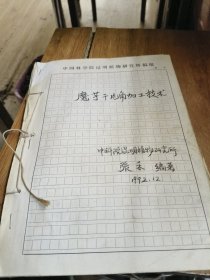 中国科学院昆明植物研究所稿纸
魔芋干片角加工技术
中科院昆明植物研究所
張禾 编著
1992.12.